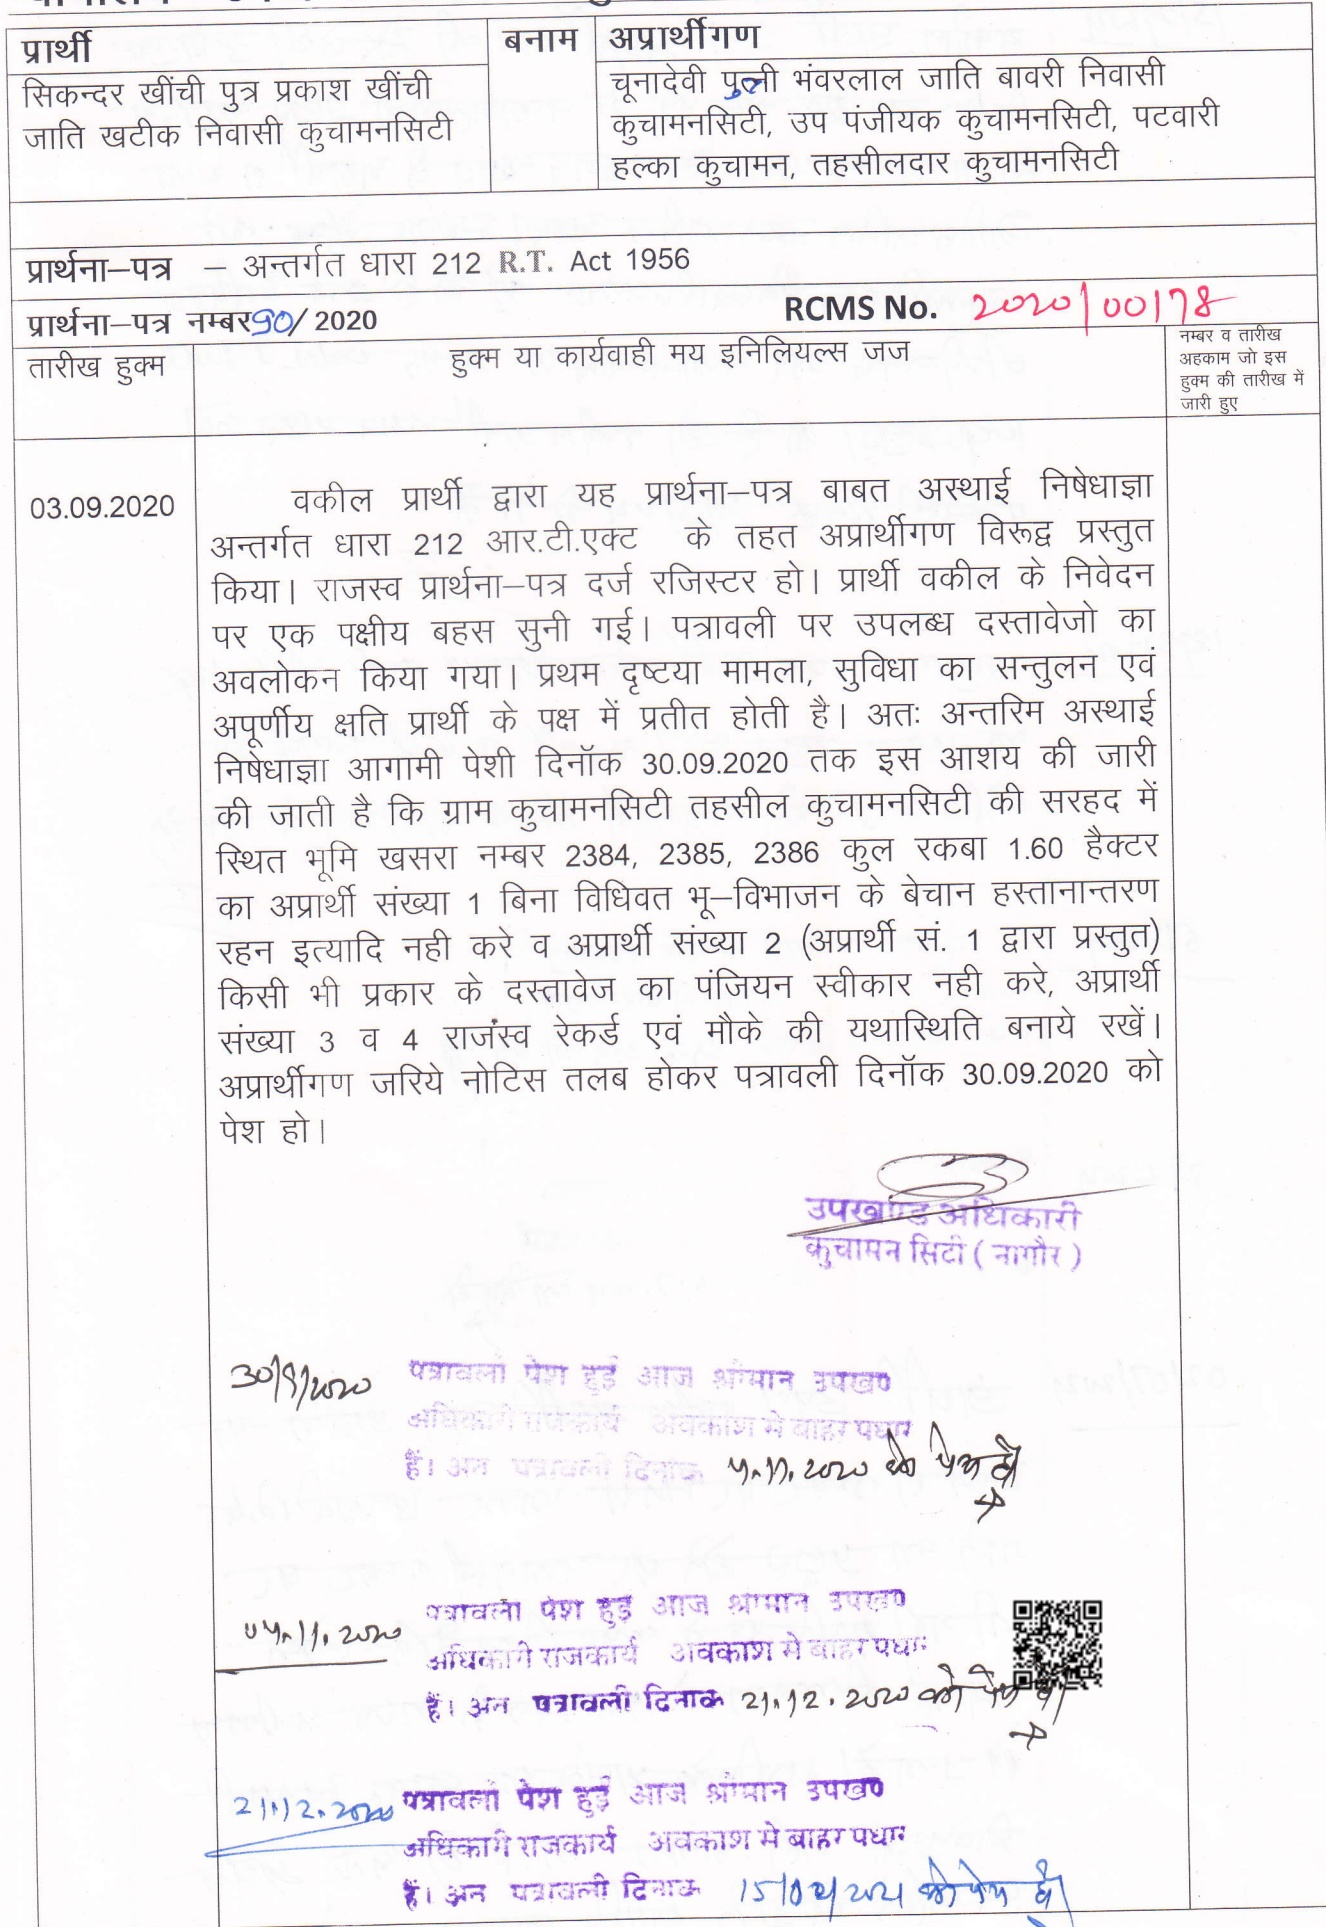 प्रार्थी
बनाम
अप्रार्थीगण
सिकन्दर खींची पुत्र प्रकाश खींची
जाति खटीक निवासी कुचामनसिटी
चूनादेवी पुत्नी भंवरलाल जाति बावरी निवासी
कुचामनसिटी, उप पंजीयक कुचामनसिटी, पटवारी
हल्का कुचामन, तहसीलदार कुचामनसिटी
प्रार्थना–पत्र – अन्तर्गत धारा 212 R.T. Act 1956
प्रार्थना–पत्र नम्बर 90/ 2020
RCMS No. 2020/00178
तारीख हुक्म
हुक्म या कार्यवाही मय इनिलियल्स जज
नम्बर व तारीख
अहकाम जो इस
हुक्म की तारीख में
जारी हुए
03.09.2020
वकील प्रार्थी द्वारा यह प्रार्थना–पत्र बाबत अस्थाई निषेधाज्ञा
अन्तर्गत धारा 212 आर.टी.एक्ट के तहत अप्रार्थीगण विरूद्व प्रस्तुत
किया। राजस्व प्रार्थना–पत्र दर्ज रजिस्टर हो। प्रार्थी वकील के निवेदन
पर एक पक्षीय बहस सुनी गई। पत्रावली पर उपलब्ध दस्तावेजो का
अवलोकन किया गया। प्रथम दृष्टया मामला, सुविधा का सन्तुलन एवं
अपूर्णीय क्षति प्रार्थी के पक्ष में प्रतीत होती है। अतः अन्तरिम अस्थाई
निषेधाज्ञा आगामी पेशी दिनॉक 30.09.2020 तक इस आशय की जारी
की जाती है कि ग्राम कुचामनसिटी तहसील कुचामनसिटी की सरहद में
स्थित भूमि खसरा नम्बर 2384, 2385, 2386 कुल रकबा 1.60 हैक्टर
का अप्रार्थी संख्या 1 बिना विधिवत भू–विभाजन के बेचान हस्तानान्तरण
रहन इत्यादि नही करे व अप्रार्थी संख्या 2 (अप्रार्थी सं. 1 द्वारा प्रस्तुत)
किसी भी प्रकार के दस्तावेज का पंजियन स्वीकार नही करे, अप्रार्थी
संख्या 3 व 4 राजस्व रेकर्ड एवं मौके की यथास्थिति बनाये रखें।
अप्रार्थीगण जरिये नोटिस तलब होकर पत्रावली दिनॉक 30.09.2020 को
पेश हो।
उपखण्ड अधिकारी
कुचामन सिटी ( नागौर )
30/9/2020 पत्रावली पेश हुई आज श्रीमान उपखण
अधिकारी राजकार्य अवकाश मे बाहर पधार
हैं। अत पत्रावली दिनांक 4.11.2020 को पेश हो
04.11.2020 पत्रावली पेश हुई आज श्रीमान उपखण
अधिकारी राजकार्य अवकाश मे बाहर पधार
हैं। अत पत्रावली दिनांक 21.12.2020 को पेश हो
21.12.2020 पत्रावली पेश हुई आज श्रीमान उपखण
अधिकारी राजकार्य अवकाश मे बाहर पधार
हैं। अत पत्रावली दिनांक 15/02/2021 को पेश हो